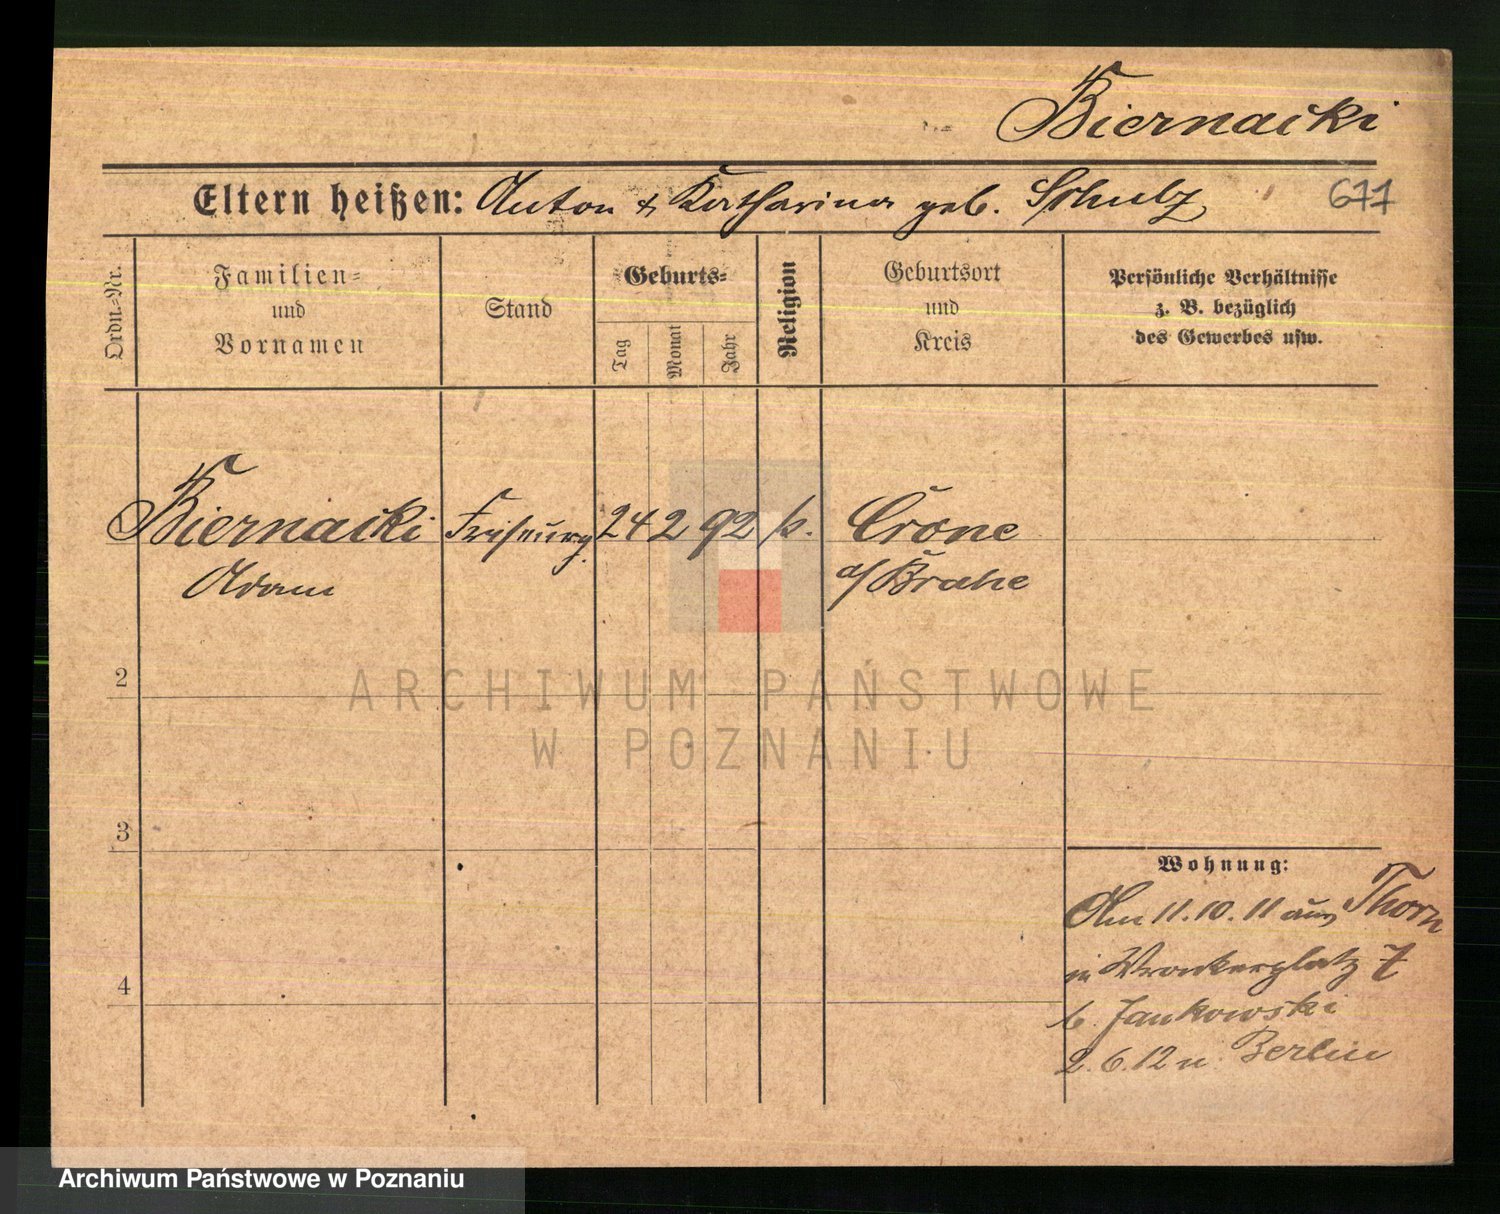 Biernacki
Eltern heißen: Anton & Katharina geb. Schulz
677
Ordn.=Nr.
Familien=
und
Vornamen
Stand
Geburts=
Tag
Monat
Jahr
Religion
Geburtsort
und
Kreis
Persönliche Verhältnisse
z. B. bezüglich
des Gewerbes usw.
Biernacki Friseurg. 24 2 92 k. Crone
Adam a/Brahe
2
3
4
Wohnung:
Am 11.10.11 aus Thorn
in Wronkerplatz 7
b. Jankowski
2.6.12 n. Berlin
ARCHIWUM PAŃSTWOWE
W POZNANIU
Archiwum Państwowe w Poznaniu